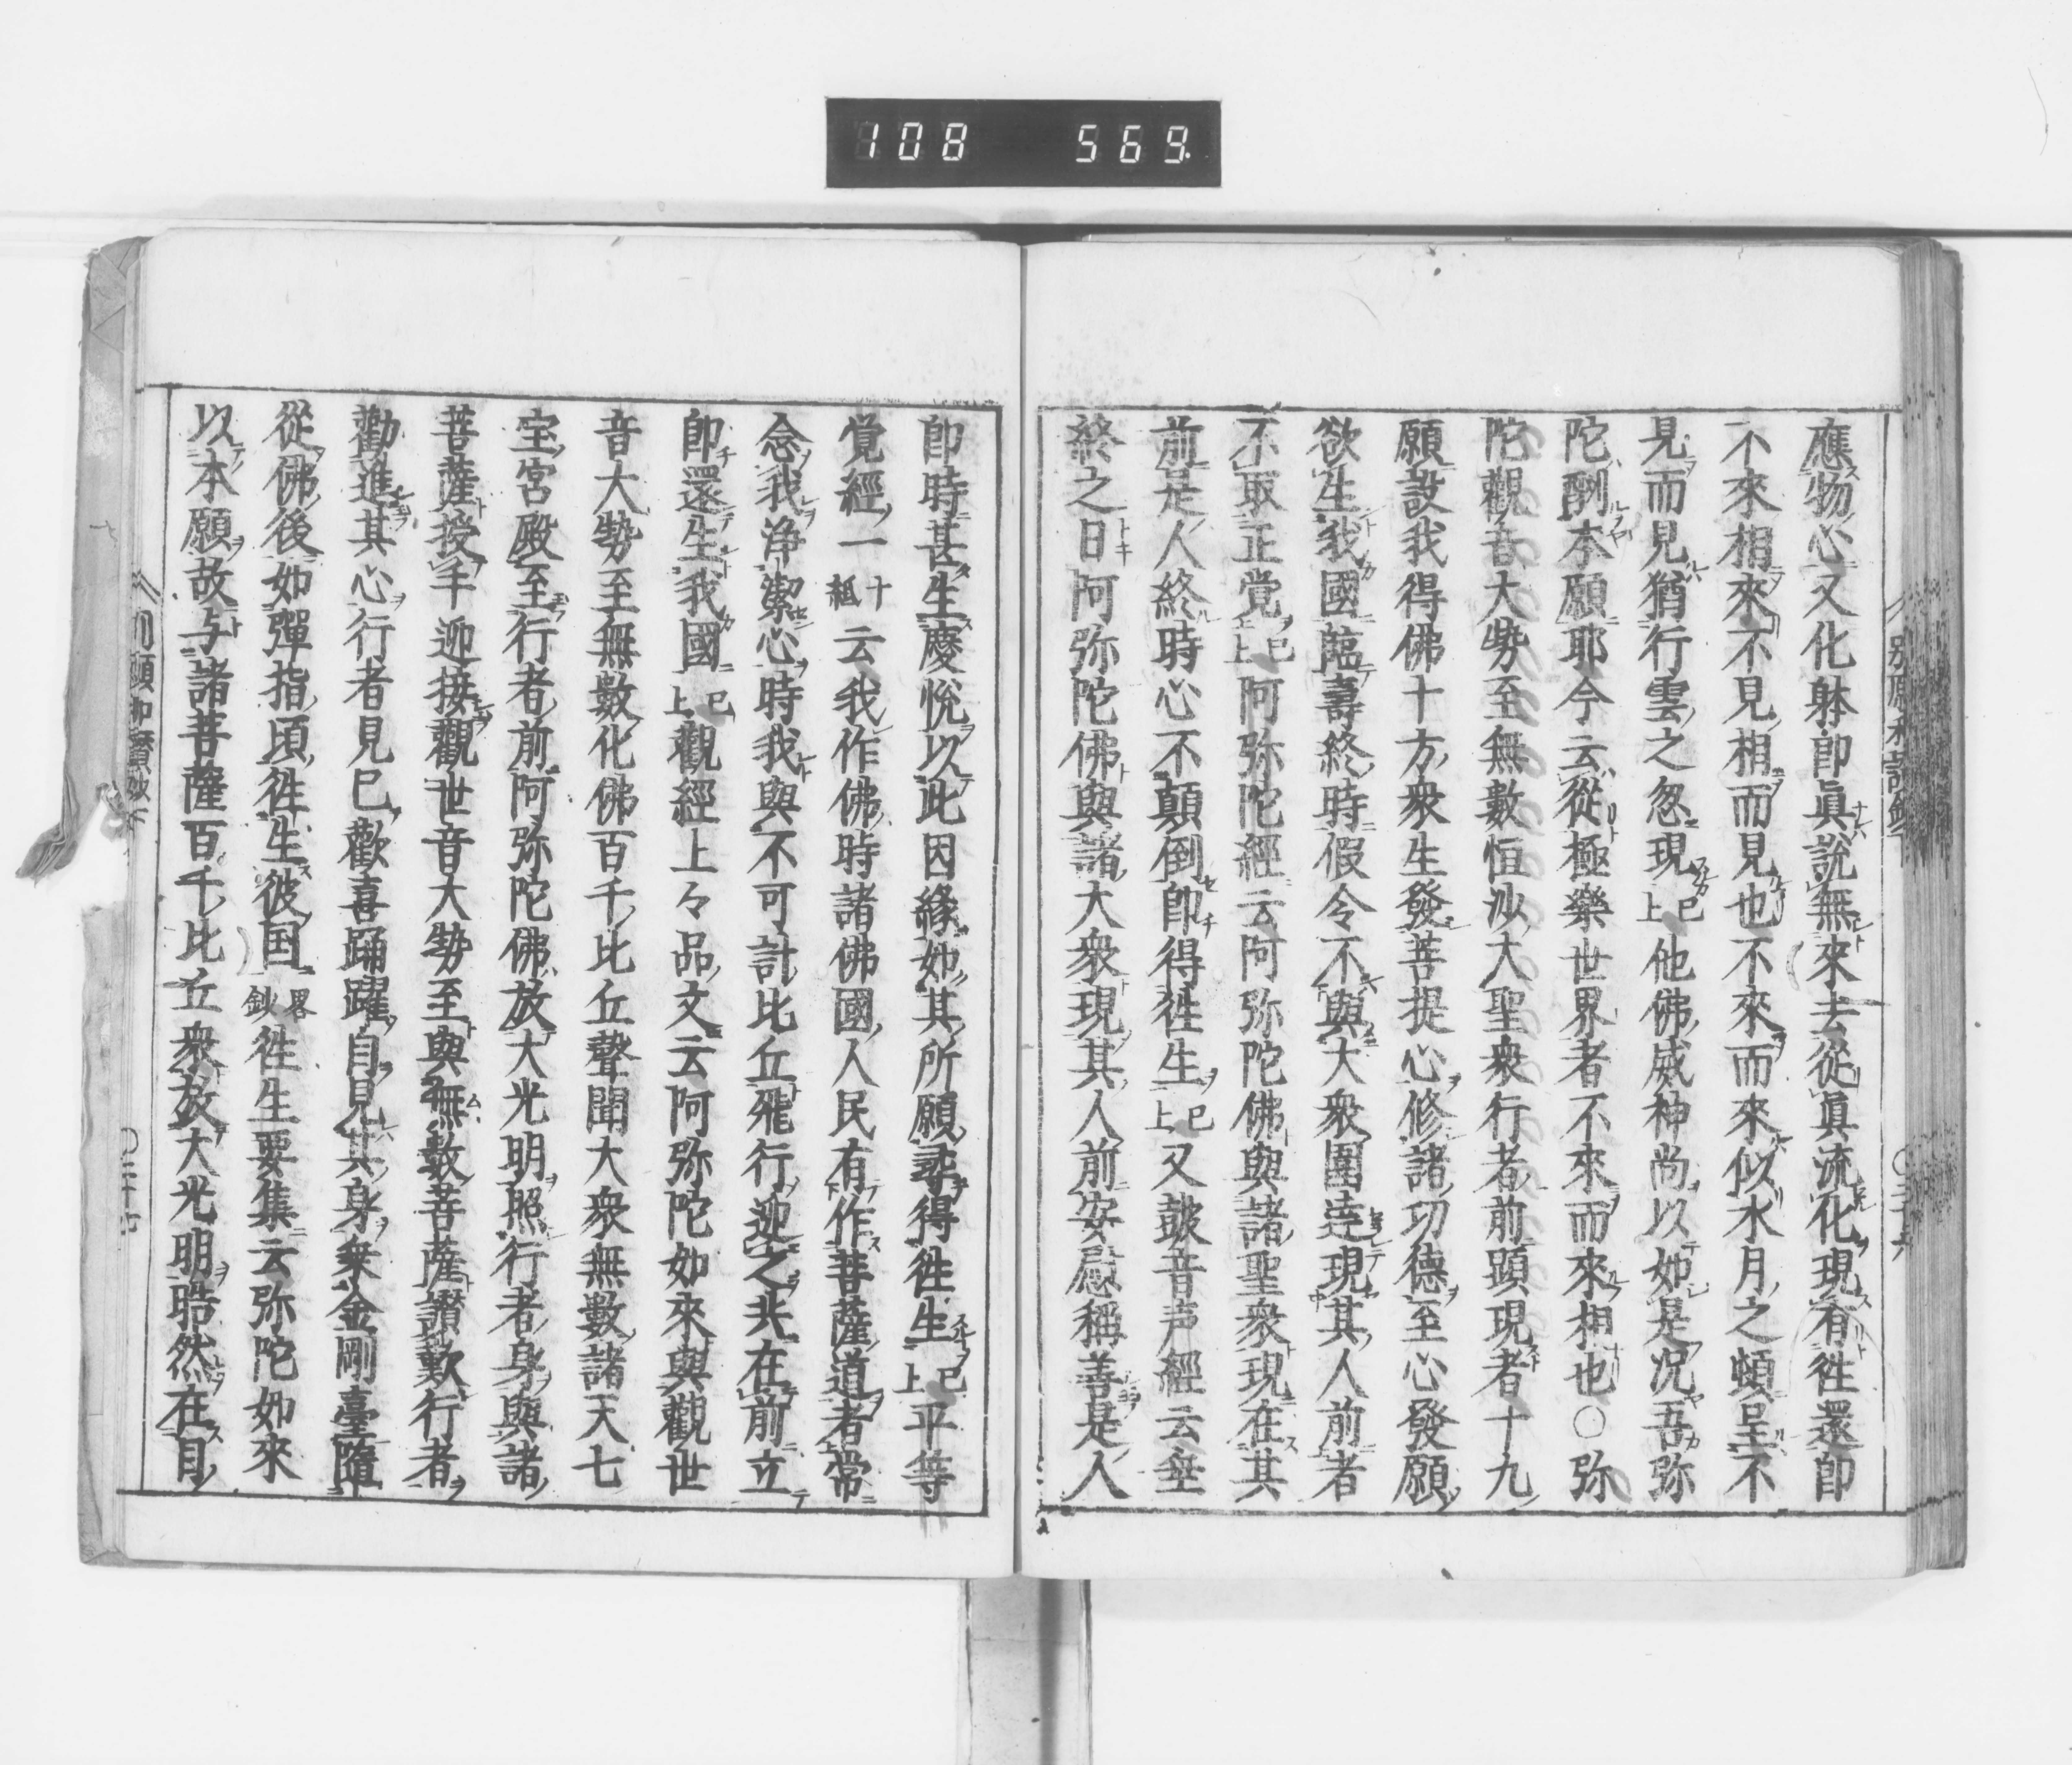 108 569.
應物心又化躰即眞說無來去從眞流化現有徃還即
不來相來不見相而見也不來而來似水月之頓呈不
見而見猶行雲之忽現已上他佛威神尚以如是况吾弥
陀酬本願耶今云從極樂世界者不來而來相也○弥
陀觀音大勢至無數恒沙大聖衆行者前顕現者十九
願設我得佛十方衆生發菩提心修諸功德至心發願
欲生我國臨壽終時假令不與大衆圍遶現其人前者
不取正覚已上阿弥陀經云阿弥陀佛與諸聖衆現在其
前是人終時心不顛倒即得徃生已上又鼓音声經云垂
終之日阿弥陀佛與諸大衆現其人前安慰稱善是人
即時甚生慶悅以此因緣如其所願尋得徃生已上平等
覚經一十紙云我作佛時諸佛國人民有作菩薩道者常
念我浄潔心時我與不可計比丘飛行迎之共在前立
即還生我國已上觀經上々品文云阿弥陀如來與觀世
音大勢至無數化佛百千比丘聲聞大衆無數諸天七
宝宮殿至行者前阿弥陀佛放大光明照行者身與諸
菩薩授手迎接觀世音大勢至與無數菩薩讃歎行者
勸進其心行者見已歡喜踊躍自見其身乗金剛臺隨
從佛後如彈指頃徃生彼国畧鈔徃生要集云弥陀如來
以本願故与諸菩薩百千比丘衆放大光明晧然在目